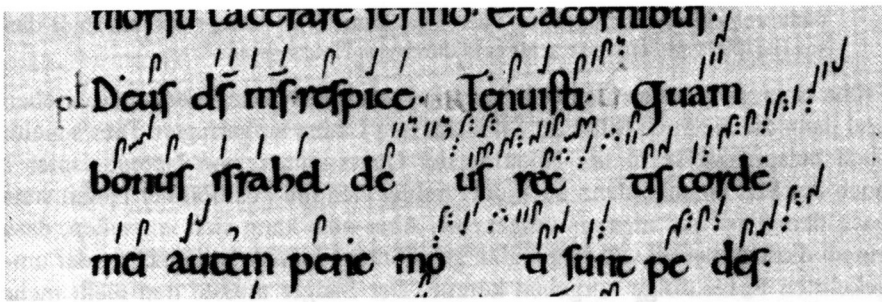 morsu lacerare ferino. et a cornibus.
pl Deus ds ms respice. Tenuisti. Quam
bonus israhel de us rec tis corde
mei autem pene mo ti sunt pe des.